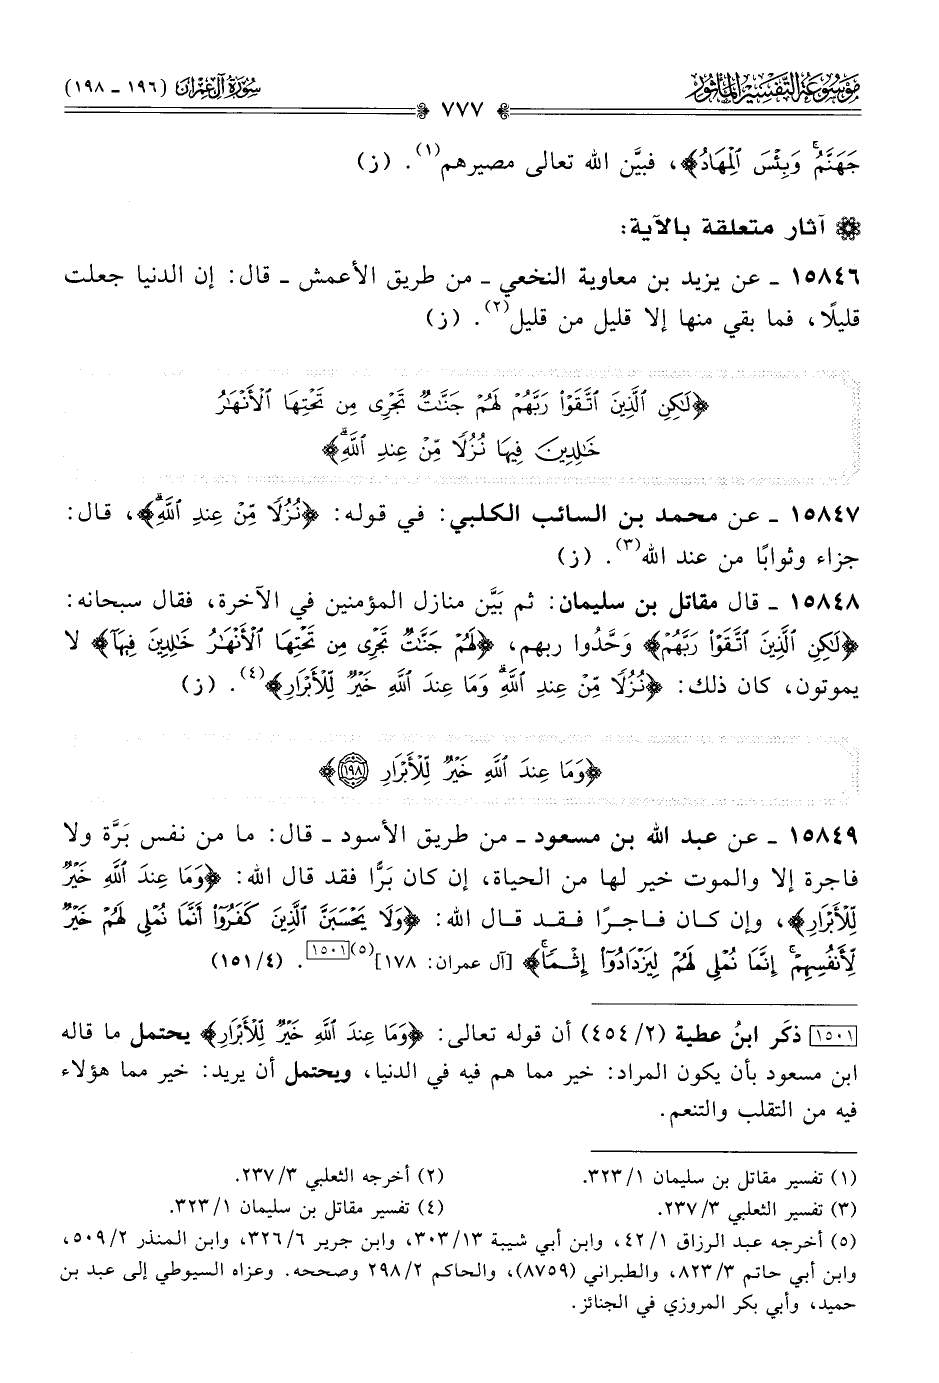 موسوعة التفسير المأثور
٧٧٧
سورة آل عمران (١٩٦ - ١٩٨)
جَهَنَّمُۚ وَبِئْسَ ٱلْمِهَادُ﴾، فبيَّن الله تعالى مصيرهم(١). (ز)
آثار متعلقة بالآية:
١٥٨٤٦ - عن يزيد بن معاوية النخعي - من طريق الأعمش - قال: إن الدنيا جعلت
قليلًا، فما بقي منها إلا قليل من قليل(٢). (ز)
﴿لَٰكِنِ ٱلَّذِينَ ٱتَّقَوْا۟ رَبَّهُمْ لَهُمْ جَنَّٰتٌ تَجْرِى مِن تَحْتِهَا ٱلْأَنْهَٰرُ
خَٰلِدِينَ فِيهَا نُزُلًا مِّنْ عِندِ ٱللَّهِۗ﴾
١٥٨٤٧ - عن محمد بن السائب الكلبي: في قوله: ﴿نُزُلًا مِّنْ عِندِ ٱللَّهِۗ﴾، قال:
جزاء وثوابًا من عند الله(٣). (ز)
١٥٨٤٨ - قال مقاتل بن سليمان: ثم بَيَّن منازل المؤمنين في الآخرة، فقال سبحانه:
﴿لَٰكِنِ ٱلَّذِينَ ٱتَّقَوْا۟ رَبَّهُمْ﴾ وَحَّدُوا ربهم، ﴿لَهُمْ جَنَّٰتٌ تَجْرِى مِن تَحْتِهَا ٱلْأَنْهَٰرُ خَٰلِدِينَ فِيهَا﴾ لا
يموتون، كان ذلك: ﴿نُزُلًا مِّنْ عِندِ ٱللَّهِۗ وَمَا عِندَ ٱللَّهِ خَيْرٌ لِّلْأَبْرَارِ﴾(٤). (ز)
﴿وَمَا عِندَ ٱللَّهِ خَيْرٌ لِّلْأَبْرَارِ ١٩٨﴾
١٥٨٤٩ - عن عبد الله بن مسعود - من طريق الأسود - قال: ما من نفس بَرَّة ولا
فاجرة إلا والموت خير لها من الحياة، إن كان بَرًّا فقد قال الله: ﴿وَمَا عِندَ ٱللَّهِ خَيْرٌ
لِّلْأَبْرَارِ﴾، وإن كان فاجرًا فقد قال الله: ﴿وَلَا يَحْسَبَنَّ ٱلَّذِينَ كَفَرُوٓا۟ أَنَّمَا نُمْلِى لَهُمْ خَيْرٌ
لِّأَنفُسِهِمْۚ إِنَّمَا نُمْلِى لَهُمْ لِيَزْدَادُوٓا۟ إِثْمًاۚ﴾ [آل عمران: ١٧٨](٥)[١٥٠١]. (٤/ ١٥١)
[١٥٠١] ذكَر ابنُ عطية (٢/ ٤٥٤) أن قوله تعالى: ﴿وَمَا عِندَ ٱللَّهِ خَيْرٌ لِّلْأَبْرَارِ﴾ يحتمل ما قاله
ابن مسعود بأن يكون المراد: خير مما هم فيه في الدنيا، ويحتمل أن يريد: خير مما هؤلاء
فيه من التقلب والتنعم.
(١) تفسير مقاتل بن سليمان ١/ ٣٢٣.
(٢) أخرجه الثعلبي ٣/ ٢٣٧.
(٣) تفسير الثعلبي ٣/ ٢٣٧.
(٤) تفسير مقاتل بن سليمان ١/ ٣٢٣.
(٥) أخرجه عبد الرزاق ١/ ٤٢، وابن أبي شيبة ١٣/ ٣٠٣، وابن جرير ٦/ ٣٢٦، وابن المنذر ٢/ ٥٠٩،
وابن أبي حاتم ٣/ ٨٢٣، والطبراني (٨٧٥٩)، والحاكم ٢/ ٢٩٨ وصححه. وعزاه السيوطي إلى عبد بن
حميد، وأبي بكر المروزي في الجنائز.